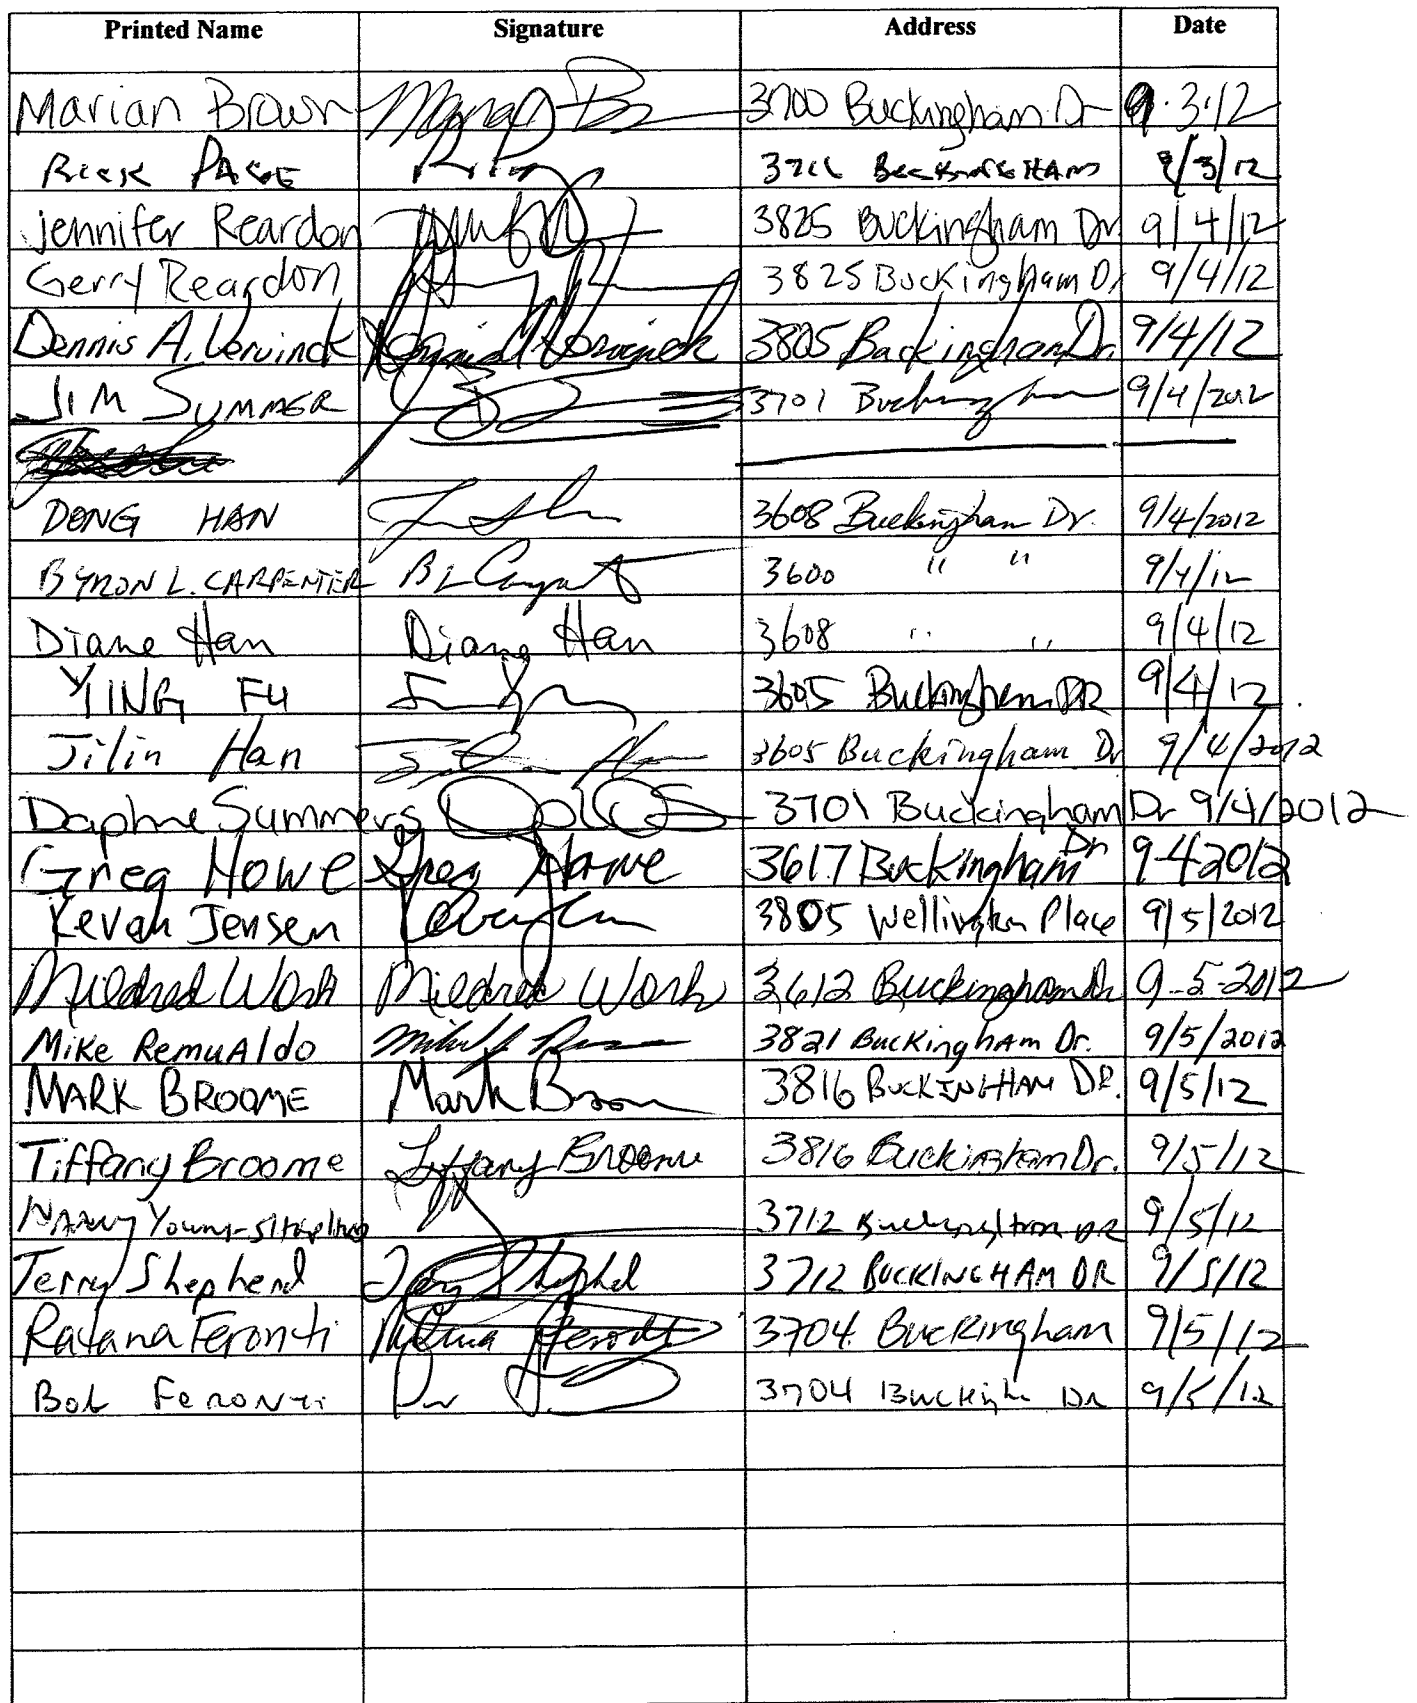 Printed Name Signature Address Date
Marian Brown 3700 Buckingham Dr 9.3.12
Rick PAGE Buckingham 9/3/12
Jennifer Reardon 3825 Buckingham Dr 9/4/12
Gerry Reardon 3825 Buckingham Dr 9/4/12
Dennis A. Vervinck 3805 Buckingham Dr. 9/4/12
JIM SUMMER 3701 Buckingham 9/4/2012
DONG HAN 3608 Buckingham Dr. 9/4/2012
BYRON L. CARPENTER BL Carpenter 3600 " " 9/4/12
Diane Han Diane Han 3608 " " 9/4/12
YING FU 3605 Buckingham DR 9/4/12
Jilin Han 3605 Buckingham Dr 9/4/2012
Daphne Summers 3701 Buckingham Dr 9/4/2012
Greg Howe Greg Howe 3617 Buckingham Dr 9-4 2012
Kevah Jensen 3805 Wellington Place 9/5/2012
Mildred Work Mildred Work 3612 Buckingham Dr 9-5-2012
Mike RemuAldo 3821 BucKinghAm Dr. 9/5/2012
MARK BROOME Mark Broom 3816 BUCKINGHAM DR. 9/5/12
Tiffany Broome Tiffany Broome 3816 Buckingham Dr. 9/5/12
3712 DR 9/5/12
Terry Shepherd Terry Shephed 3712 BUCKINGHAM DR 9/5/12
Ratana Feronti Ratana Feronti 3704 Buckingham 9/5/12
Bob Feronti 3704 Dr 9/5/12